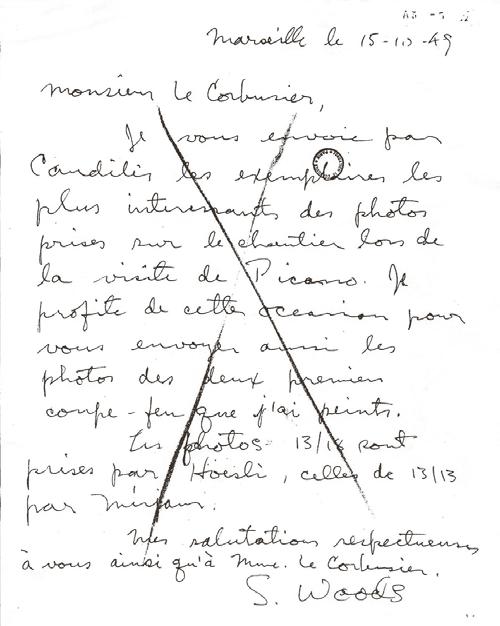 Marseille le 15-10-49
Monsieur Le Corbusier,
Je vous envoie par
Candilis les exemplaires les
plus interessants des photos
prises sur le chantier lors de
la visite de Picasso. Je
profite de cette occasion pour
vous envoyer aussi les
photos des deux premiers
coupe-feu que j'ai peints.
Les photos 13/18 sont
prises par Hoesli, celles de 13/13
par
Mes salutations respectueuses
à vous ainsi qu'à Mme. Le Corbusier.
S. Woods